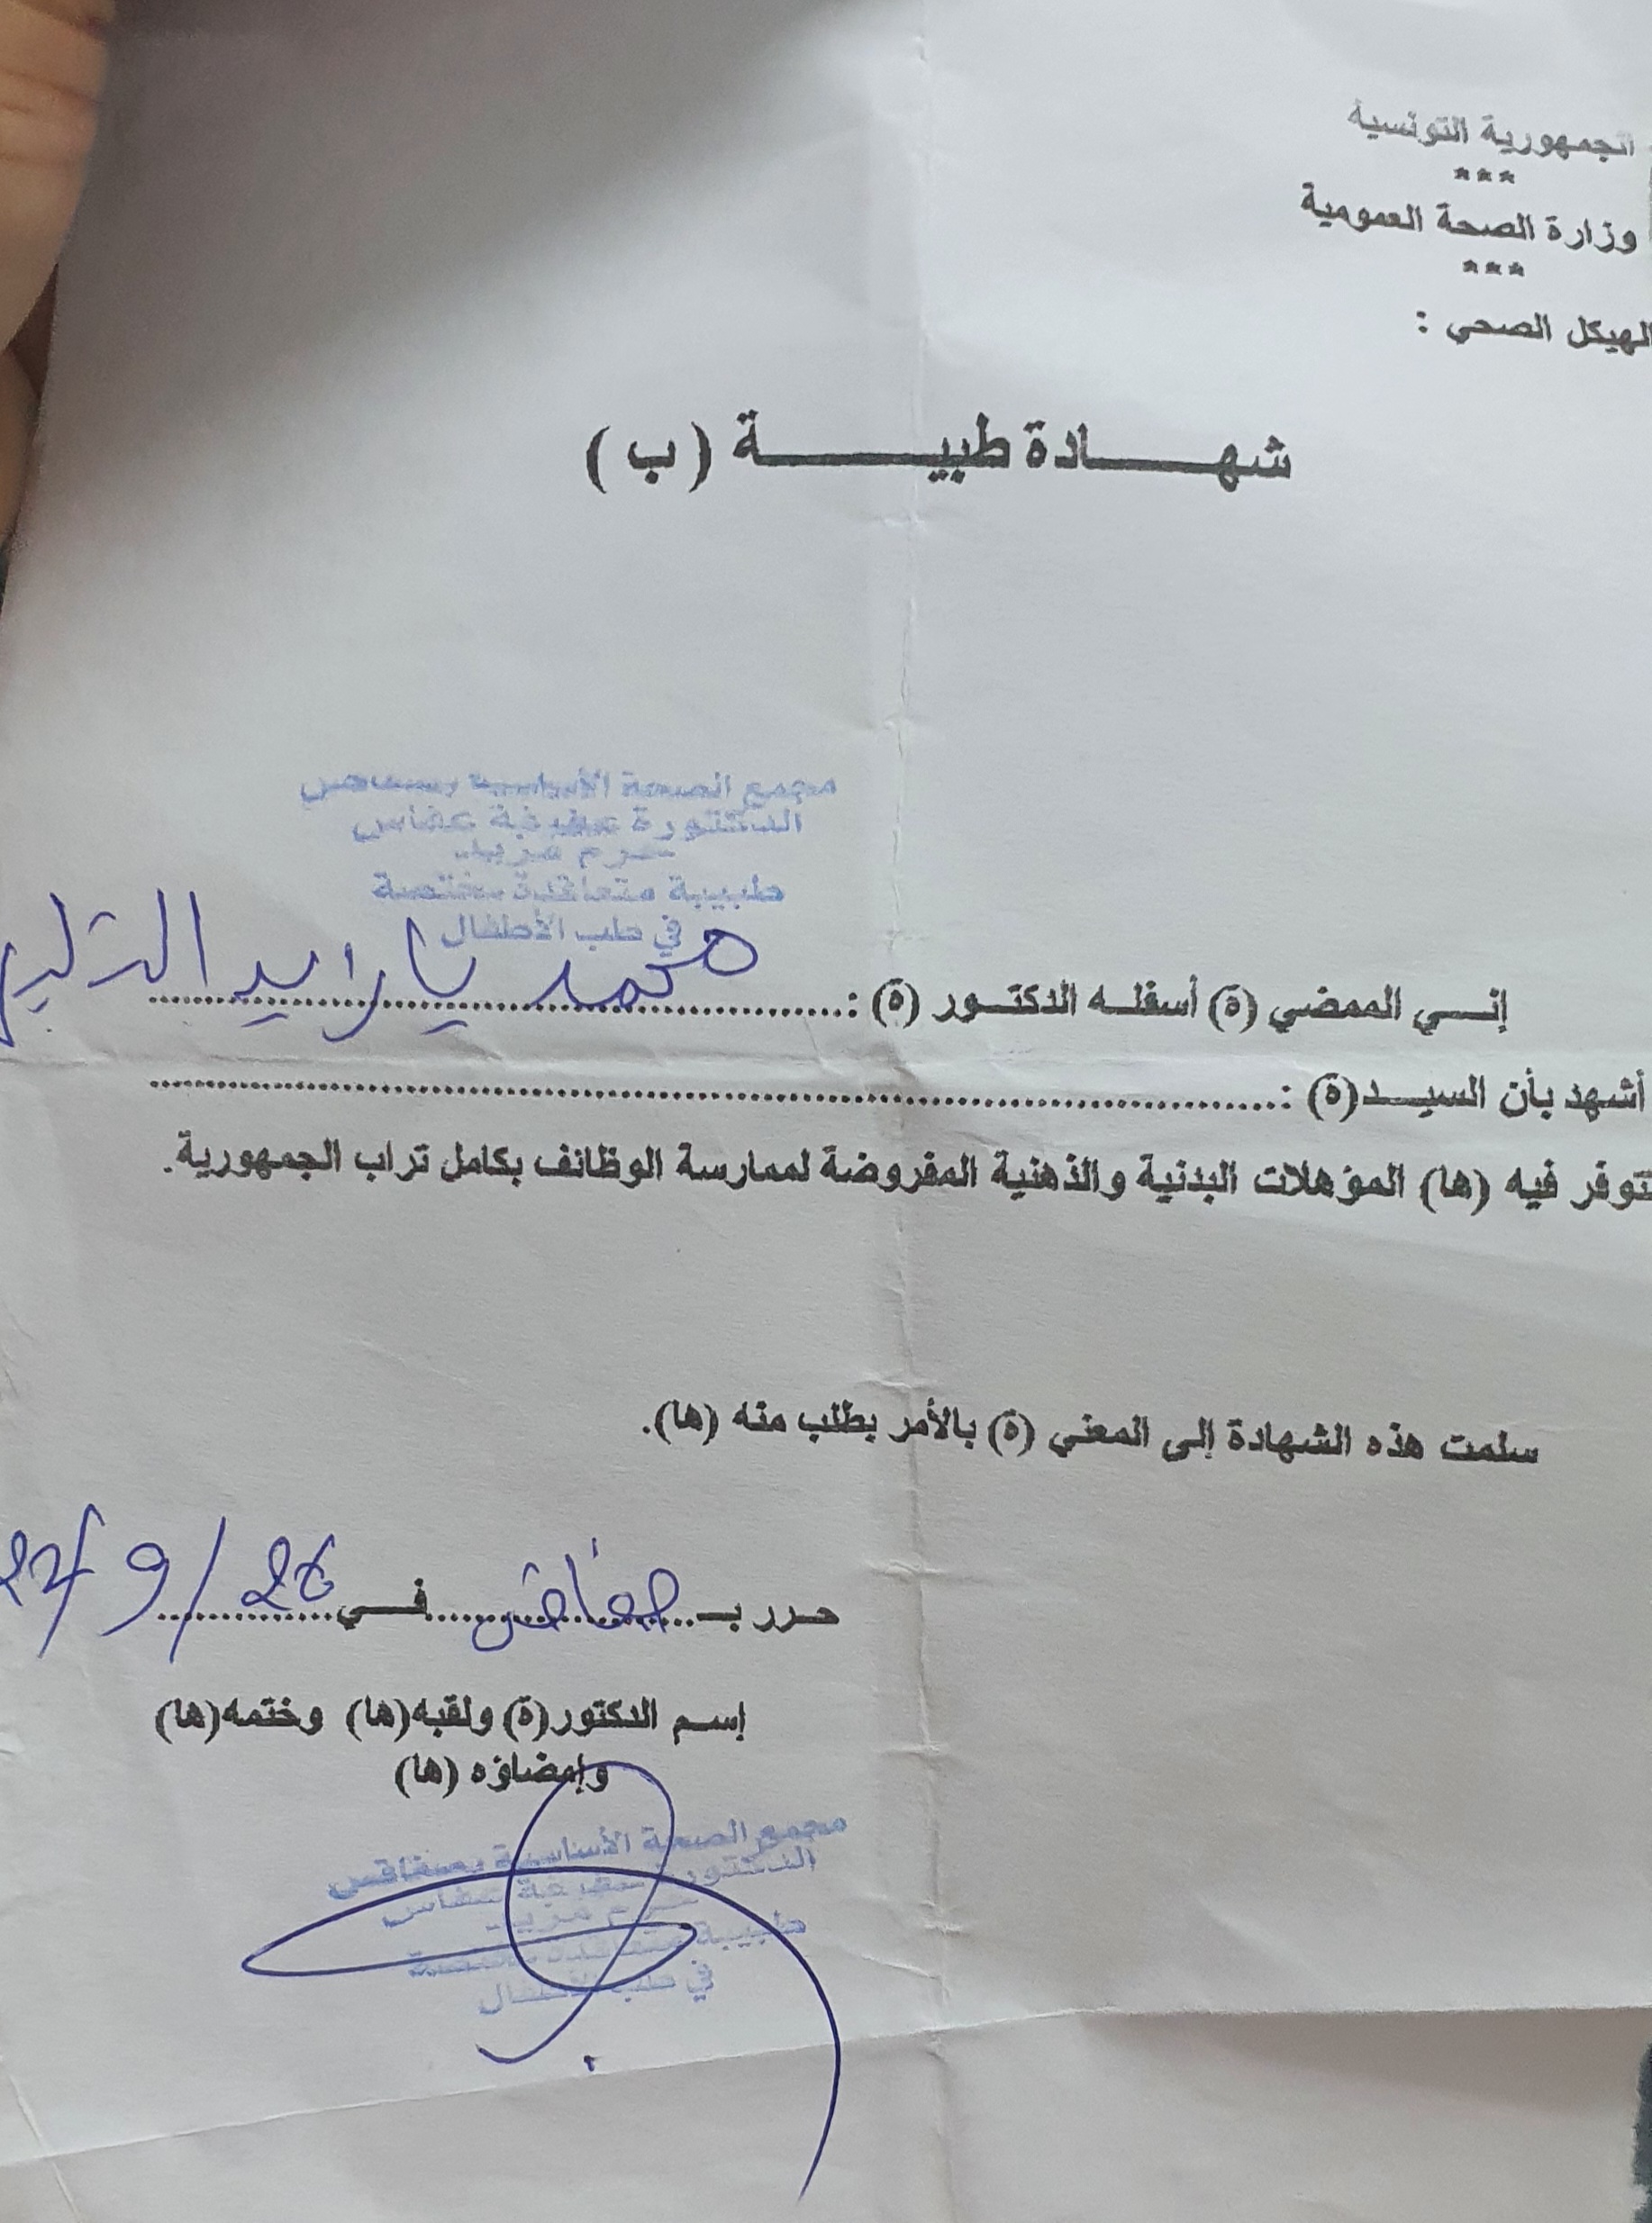 الجمهورية التونسية
***
وزارة الصحة العمومية
***
الهيكل الصحي :
شهــــادة طبيــــــة ( ب )
مجمع الصحة الأساسية بصفاقس
الدكتورة
حرم
طبيبة متعاقدة مختصة
في طب الأطفال
إنــي الممضي (ة) أسفلــه الدكتــور (ة) :........................ محمد
أشهد بأن السيــد(ة) :........................................
تتوفر فيه (ها) المؤهلات البدنية والذهنية المفروضة لممارسة الوظائف بكامل تراب الجمهورية.
سلمت هذه الشهادة إلى المعني (ة) بالأمر بطلب منه (ها).
حـرر بـ صفاقس فــي 26/9/
إســم الدكتور(ة) ولقبه(ها) وختمه(ها)
وإمضاؤه (ها)
مجمع الصحة الأساسية بصفاقس
الدكتورة
حرم
طبيبة متعاقدة مختصة
في طب الأطفال